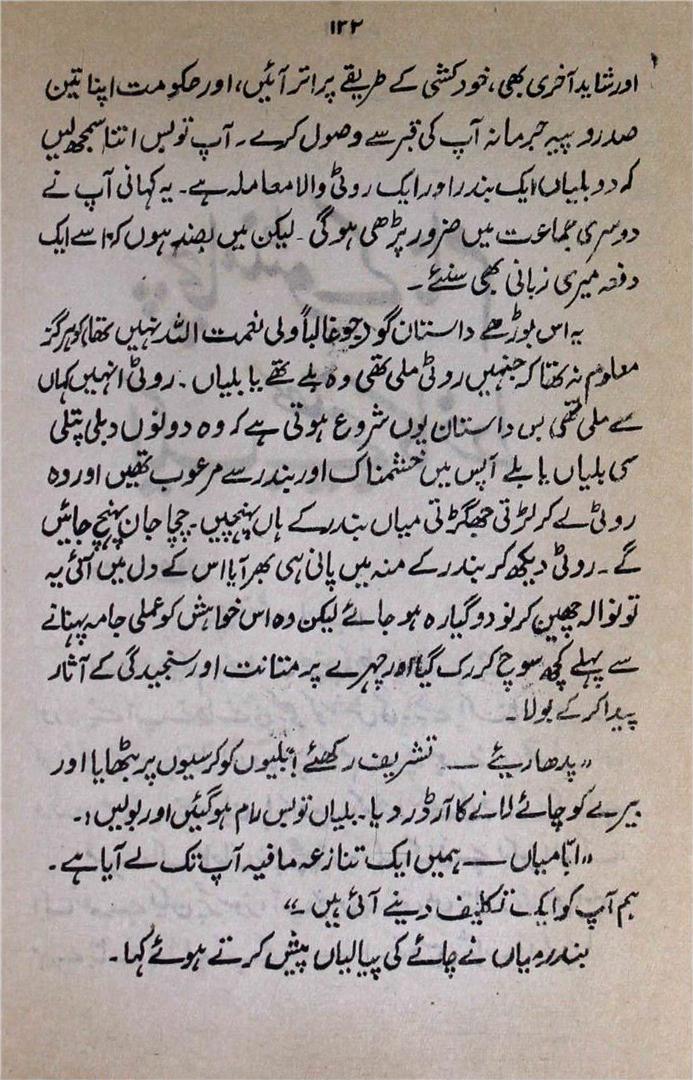 ۱۲۲
اور شاید آخری بھی، خودکشی کے طریقے پر اتر آئیں، اور حکومت اپنا تین
صد روپیہ جرمانہ آپ کی قبر سے وصول کرے۔ آپ تو بس اتنا سمجھ لیں
کہ دو بلیاں ایک بندر اور ایک روٹی والا معاملہ ہے۔ یہ کہانی آپ نے
دوسری جماعت میں ضرور پڑھی ہوگی۔ لیکن میں بضد ہوں کہ اسے ایک
دفعہ میری زبانی بھی سنئے۔
یہ اس بوڑھے داستان گو (جو غالباً ولی نعمت اللہ نہیں تھا) کو ہرگز
معلوم نہ تھا کہ جنہیں روٹی ملی تھی وہ بلے تھے یا بلیاں۔ روٹی انہیں کہاں
سے ملی تھی بس داستان یوں شروع ہوتی ہے کہ وہ دونوں دبلی پتلی
سی بلیاں یا بلے آپس میں خشمناک اور بندر سے مرعوب تھیں اور وہ
روٹی لے کر لڑتی جھگڑتی میاں بندر کے ہاں پہنچیں۔ چچا جان پہنچ جائیں
گے۔ روٹی دیکھ کر بندر کے منہ میں پانی ہی بھر آیا اس کے دل میں آئی یہ
تو نوالہ چھین کر نو دو گیارہ ہو جائے لیکن وہ اس خواہش کو عملی جامہ پہنانے
سے پہلے کچھ سوچ کر رک گیا اور چہرے پر متانت اور سنجیدگی کے آثار
پیدا کر کے بولا۔
"پدھاریئے — تشریف رکھئے بلیوں کو کرسیوں پر بٹھایا اور
بیرے کو چائے لانے کا آرڈر دیا۔ بلیاں تو بس رام ہو گئیں اور بولیں:۔
"ابا میاں — ہمیں ایک تنازعہ مافیہ آپ تک لے آیا ہے۔
ہم آپ کو ایک تکلیف دینے آئی ہیں۔"
بندر میاں نے چائے کی پیالیاں پیش کرتے ہوئے کہا۔